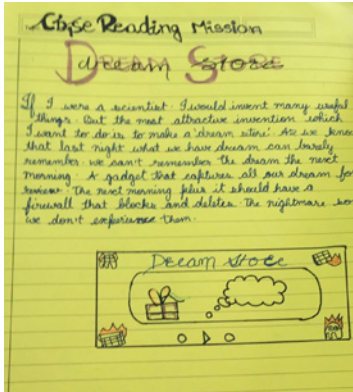 Cbse Reading Mission
Dream Store
If I were a scientist. I would invent many useful
things. But the most attractive invention which
I want to do is to make a 'dream store'. As we know
that last night what we have dream can barely
remember. we can't remember the dream the next
morning. A gadget that captures all our dream for
review. The next morning plus it should have a
firewall that blocks and deletes. The nightmare so
we don't experience them.
Dream store